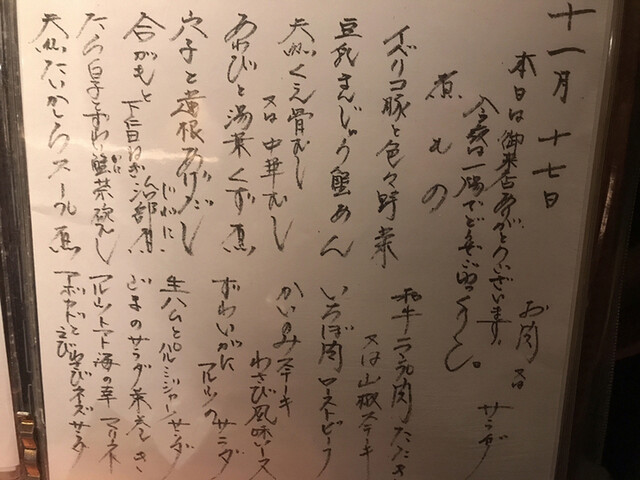 十一月 十七日
本日は御来店ありがとうございます。
今夜は一陽でどうぞごゆっくり
煮もの
イベリコ豚と色々野菜
豆乳まんじゅう蟹あん
天然くえ骨むし
又は中華むし
あわびと湯葉くず煮
穴子と蓮根
合がもと下仁田ねぎ治部煮
たら白子とずわい蟹茶碗むし
天然たいかとろスープ煮
お肉 又は サラダ
和牛 肉たたき
又は山椒ステーキ
いちぼ肉ローストビーフ
かいのみステーキ
わさび風味ソース
ずわいがに
アルツの サラダ
生ハムとパルミジャーノサラダ
サラダ菜巻き
アルツトマト海の幸マリネ
アボカドとえび わさびマヨネーズサラダ